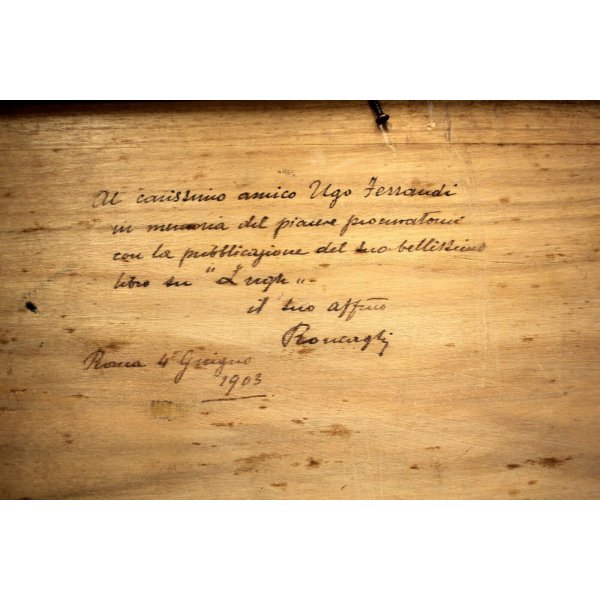 Al carissimo amico Ugo Ferrandi
in memoria del piacere procuratomi
con la pubblicazione del suo bellissimo
libro su "Lugh"
il suo affmo
Roncagli
Roma 4 Giugno
1903